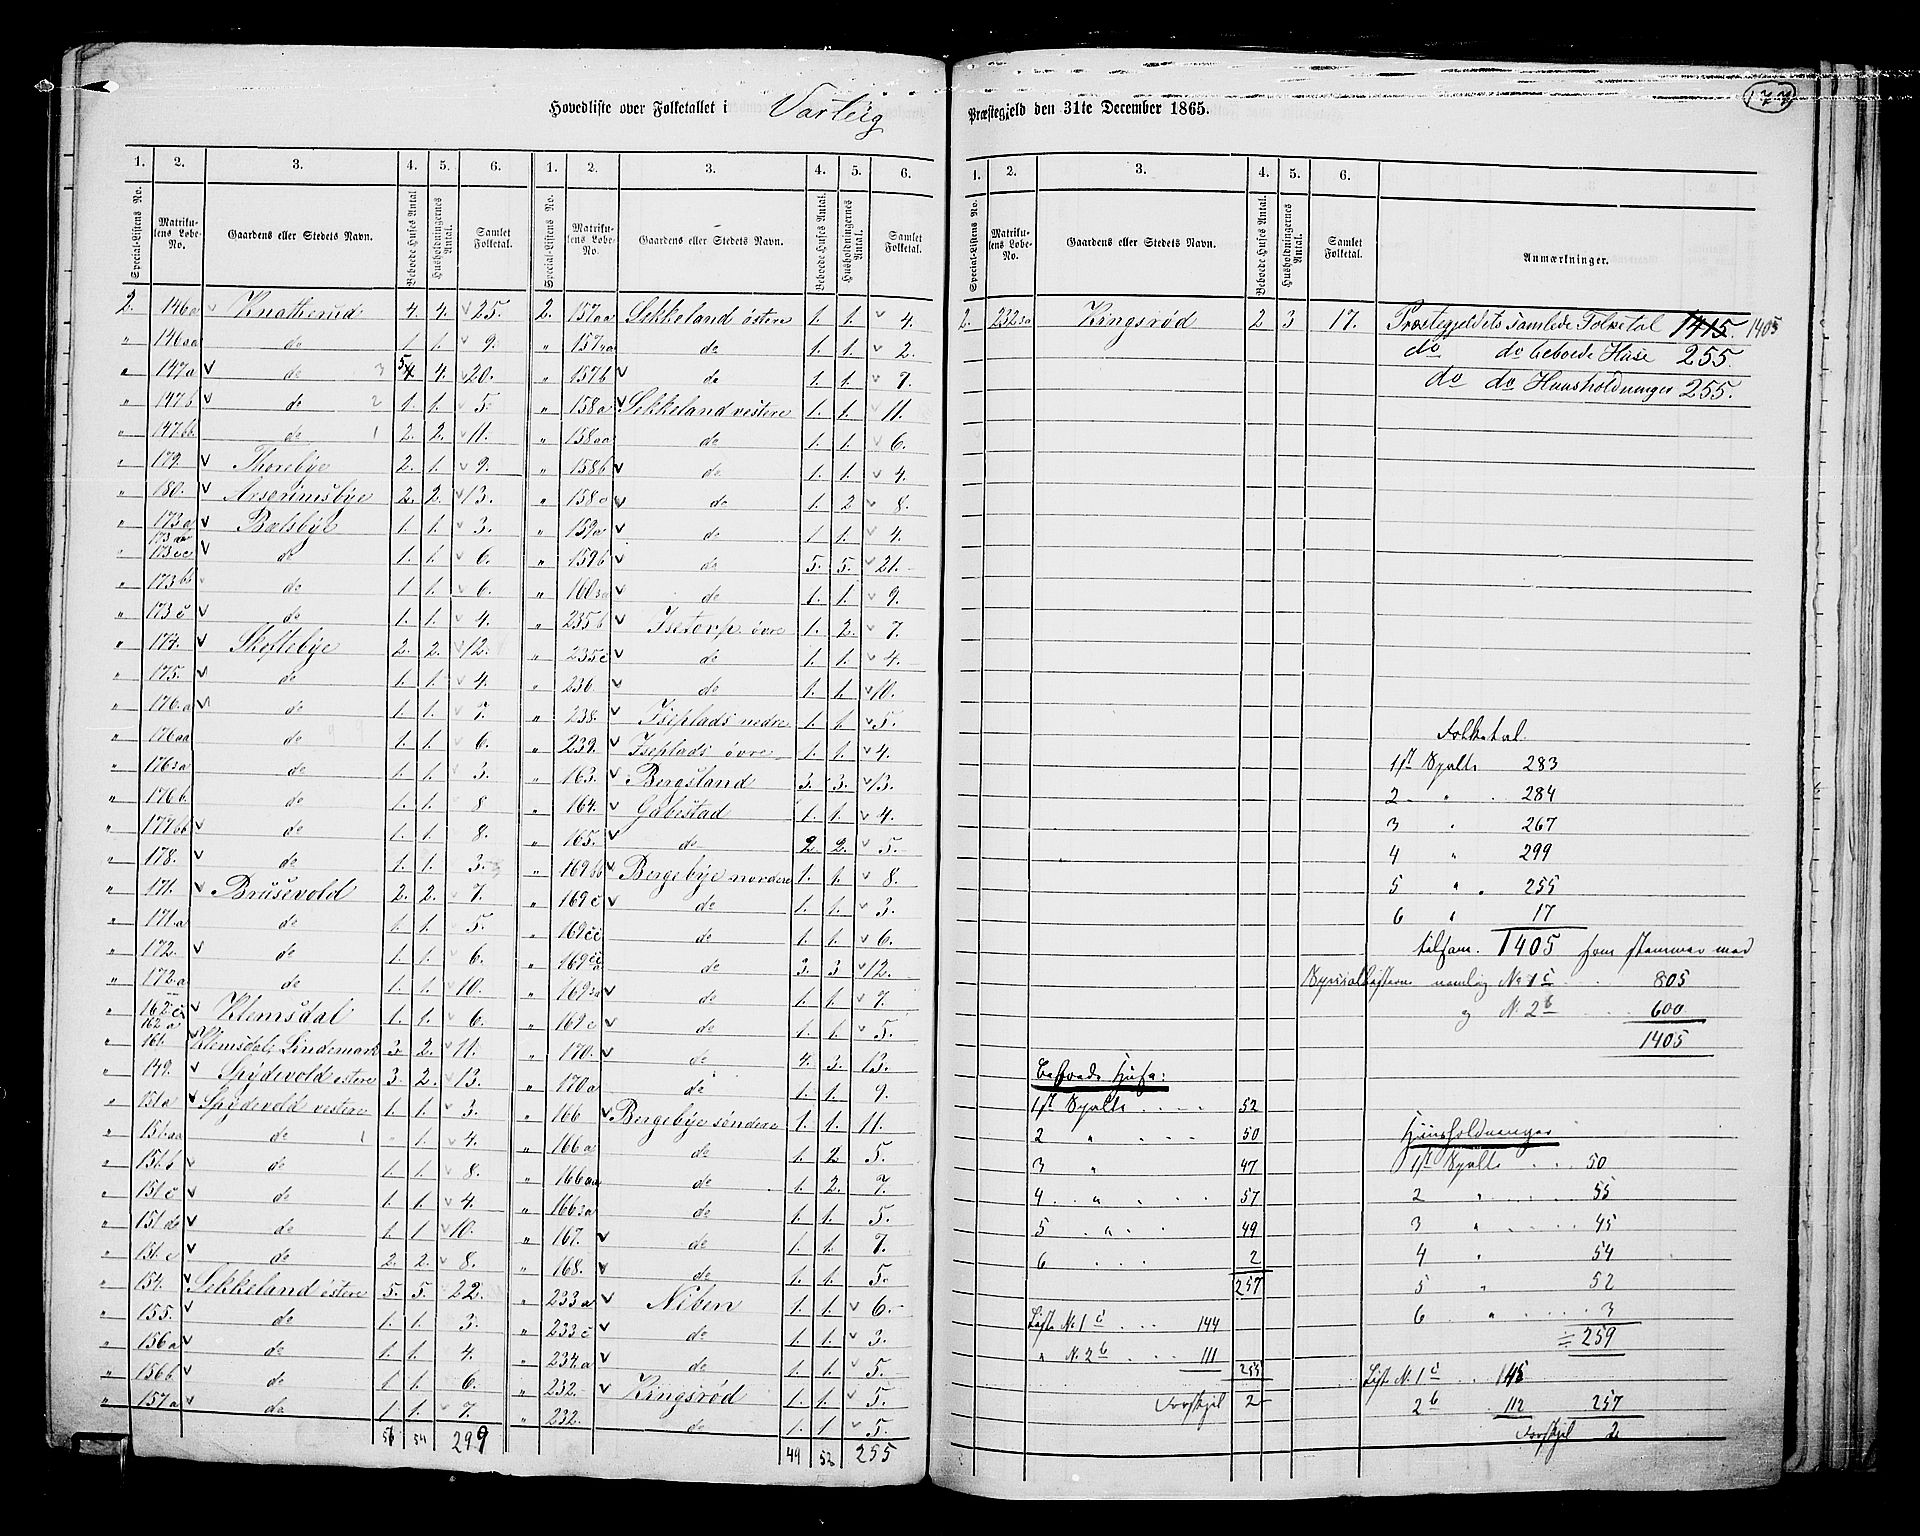 Hovedliste over Folketallet i Varteig Præstegjeld den 31te December 1865.
177
1. 2. 3. 4. 5. 6. 1. 2. 3. 4. 5. 6.
Special-Listens No. Matrikulens Løbe-No. Gaardens eller Stedets Navn. Beboede Huses Antal Husholdningernes Antal. Samlet Folketal. Special-Listens No. Matrikulens Løbe-No. Gaardens eller Stedets Navn. Beboede Huses Antal. Husholdningernes Antal. Samlet Folketal.
2. 146a Knatterud 4. 4. 25.
" 146aa do 1 1. 9.
" 147a do 3 5 4 4. 20.
" 147b do 2 1. 1. 5.
" 147bb do 1 2. 2. 11.
" 179. Thorebye 2. 1. 9.
" 180. Arserimsbye 2. 2. 13.
" 173a Bælsbye 1. 1. 3.
173aa
" 173ac do 1. 1. 6.
" 173bb do 1 1. 6.
" 173c do 1. 1. 4.
" 174. Skoflebye 2. 2. 12.
" 175. do 1. 1. 4.
" 176.a do 1. 1. 7.
" 176aa do 1. 1. 6.
" 176aa do 1. 1. 3.
" 176b. do 1. 1. 8
" 177bb do 1. 1. 8.
" 178. do 1. 1. 3.
" 171. Brusevold 2. 2. 7.
" 171.a do 1. 1. 5.
" 172. do 1. 1. 6.
" 172.a do 1. 1. 10.
" 162c Klemsdal 1. 1. 6.
162a
" 161. Klemsdal, Lindemark 3. 2. 11.
" 149. Spydevold østere 3. 2. 13.
" 151a Spydevold vestere 1. 1. 3.
" 151aa do 1 " 1. 4.
" 151.b do 1. 1. 8.
" 151c do 1. 1. 4.
" 151.d do 1. 1 10.
" 151.e do 2. 2. 8.
" 154. Sekkeland østere 5. 5. 22.
" 155. do 1. 1. 3.
" 156a do 1. 1. 4.
" 156b do 1 1. 6.
" 157a do 1. 1. 7.
56 54 299
2. 157aa Sekkeland østere 1. 1. 4.
" 157aa do 1. 1. 2.
" 157b do 1. 1. 7.
" 158a Sekkeland vestere 1. 1. 11.
" 158aa do 1. 1. 6.
" 158b do 1. 1. 4.
" 158c do 1. 2 8.
" 159a do 1 1. 4.
" 159b do 5. 5. 21.
" 160aa do 1. 1. 9.
" 235b Isetorp øvre 1. 2. 7.
" 235c do 1. 1. 4.
" 236. do 1. 1. 10.
" 238. Iseplads nedre 1. 1. 5.
" 239. Iseplads øvre 1. 1. 4.
" 163. Bergsland 3. 3. 13.
" 164. Gabestad 1. 1. 4.
" 165. do 2. 2. 5.
" 169bb Bergebye nordere 1. 1. 8.
" 169c do 1. 1. 3.
" 169cc do 1. 1. 6.
" 169cc a do 3. 3 12.
" 169aa do 1. 1. 7.
" 169e do 1. 1. 5.
" 170. do 4. 3. 13.
" 170a do 1. 1. 9.
" 166 Bergebye søndere 1. 1. 11.
" 166a do 1. 2 5.
" 166aa do 1. 2. 7.
" 166aa do 1. 1. 5.
" 167. do 1. 1. 7.
" 168. do 1. 1. 5.
" 233a Niben 1. 1. 6.
" 233c do 1. 1. 3.
" 234.a do 1. 1. 5.
" 232. Kingsrød 1. 1. 5.
" 232. do 1. 1 5.
49 52 255
1. 2. 3. 4. 5. 6.
Special-Listens No. Matrikulens Løbe-No. Gaardens eller Stedets Navn. Beboede Huses Antal. Husholdningernes Antal. Samlet Folketal. Anmærkninger.
2. 232aa Kingsrød 2 3 17. Præstegjeldets samlede Folketal 1415. 1405
do do beboede Huse 255.
do do Huusholdninger 255.
Folketal.
1st Spalte 283
2 " 284
3 " 267
4 " 299
5 " 255
6 " 17
tilsam. 1405 som stemmer med
Speciallisterne nemlig No 1c 805
og N. 2b 600
1405
Beboede Huse:
1st Spalte 52
2 " 50
3 " 47
4 " 57
5 " 49
6 2
257
Liste N. 1c 144
" N. 2b 111
255
Forskjel 2
Huusholdninger
1st Spalte 50
2 " 55
3 " 45
4 " 54
5 " 52
6 " 3
= 259
Liste N. 1c 145
2b 112 257
Forskjel 2